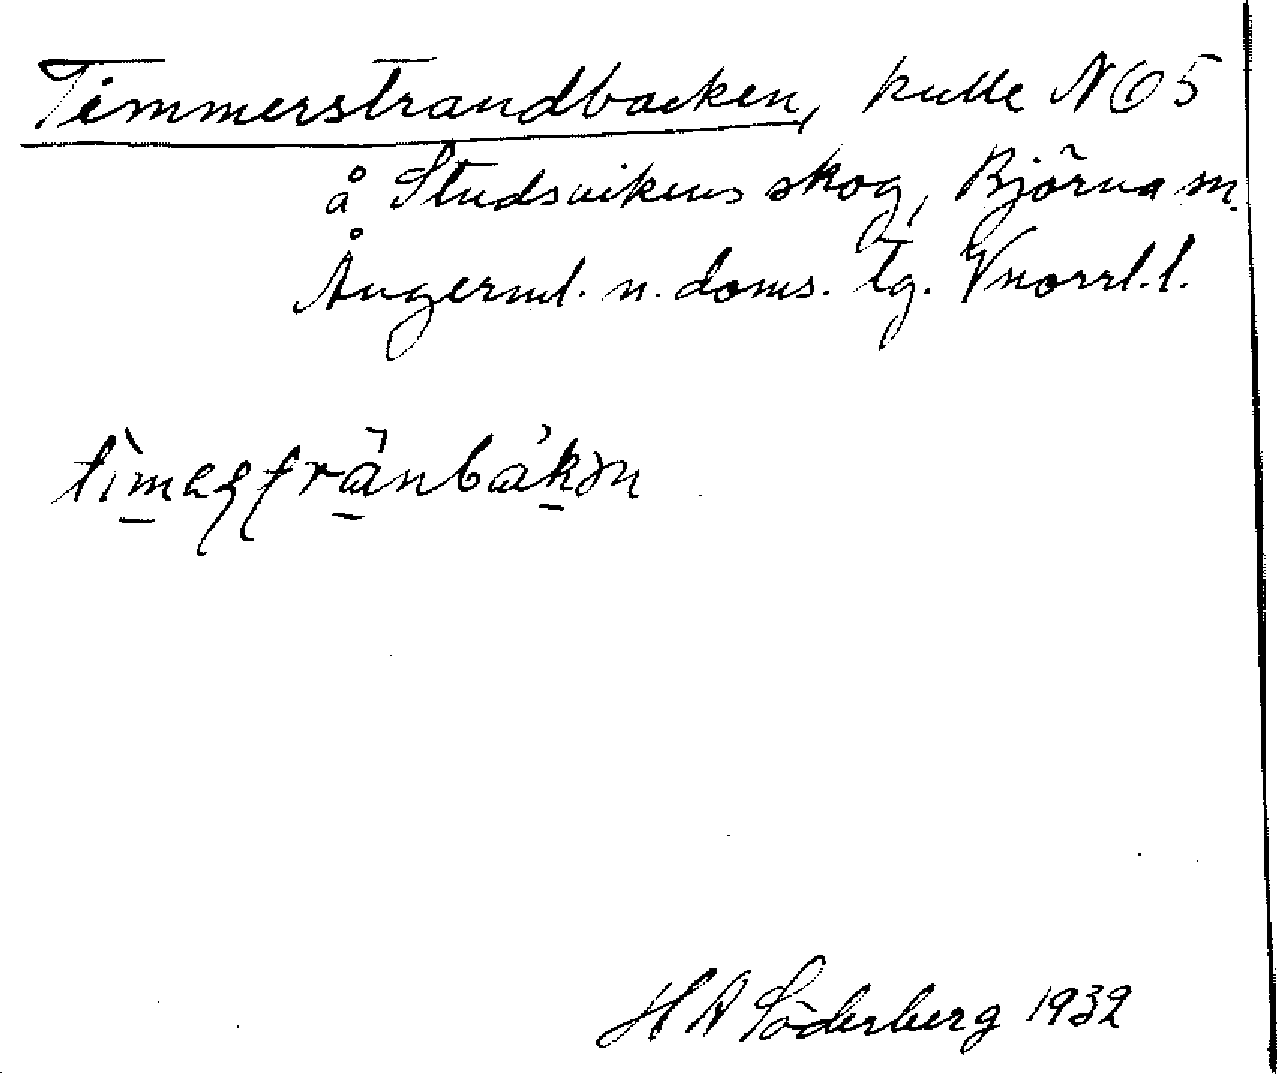 Timmerstrandbacken, kulle N65
å Studsvikens skog, Björna sn.
Ångerml. n. doms. tg. Vnorrl. l.
H A Söderberg 1932